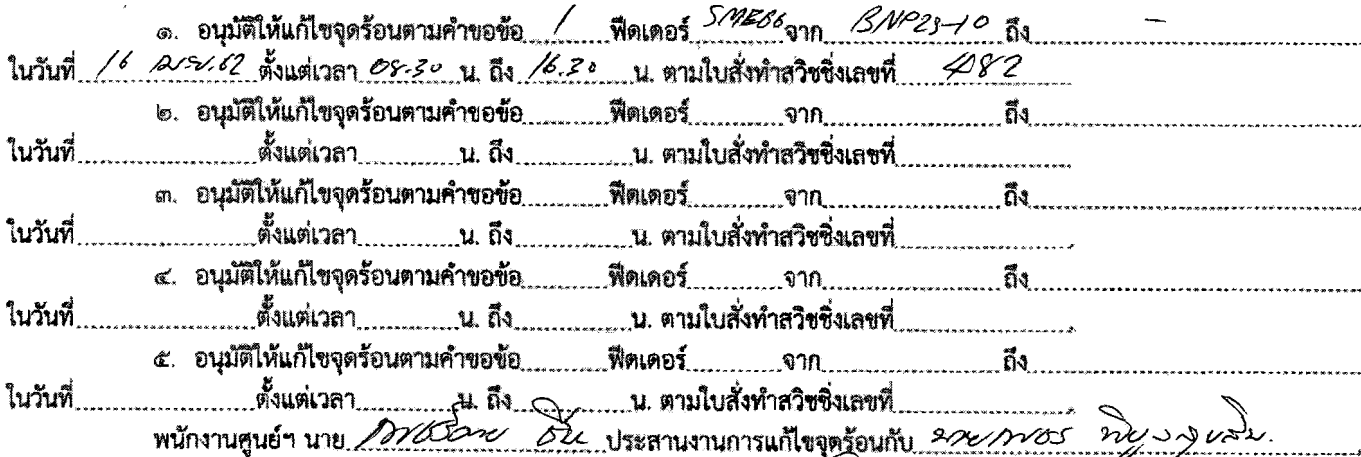 ๑. อนุมัติให้แก้ไขจุดร้อนตามคำขอข้อ 1 ฟีดเดอร์ SMEB6 จาก BNP2S-10 ถึง -
ในวันที่ 16 เม.ย.62 ตั้งแต่เวลา 08.30 น. ถึง 16.30 น. ตามใบสั่งทำสวิชชิ่งเลขที่ 482
๒. อนุมัติให้แก้ไขจุดร้อนตามคำขอข้อ ฟีดเดอร์ จาก ถึง
ในวันที่ ตั้งแต่เวลา น. ถึง น. ตามใบสั่งทำสวิชชิ่งเลขที่
๓. อนุมัติให้แก้ไขจุดร้อนตามคำขอข้อ ฟีดเดอร์ จาก ถึง
ในวันที่ ตั้งแต่เวลา น. ถึง น. ตามใบสั่งทำสวิชชิ่งเลขที่
๔. อนุมัติให้แก้ไขจุดร้อนตามคำขอข้อ ฟีดเดอร์ จาก ถึง
ในวันที่ ตั้งแต่เวลา น. ถึง น. ตามใบสั่งทำสวิชชิ่งเลขที่
๕. อนุมัติให้แก้ไขจุดร้อนตามคำขอข้อ ฟีดเดอร์ จาก ถึง
ในวันที่ ตั้งแต่เวลา น. ถึง น. ตามใบสั่งทำสวิชชิ่งเลขที่
พนักงานศูนย์ฯ นาย ประสานงานการแก้ไขจุดร้อนกับ